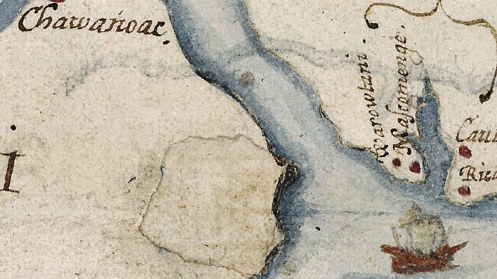 Chawanoac.
Warowtani.
Mascomenge.